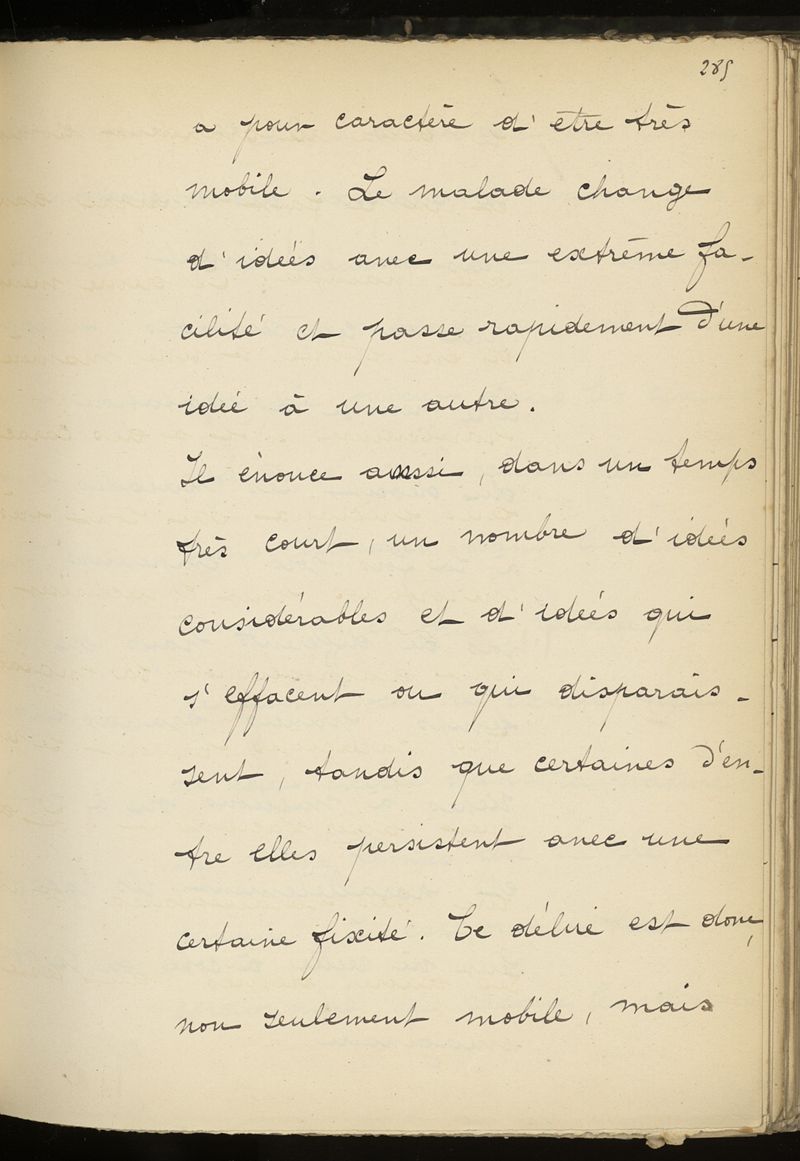 285
a pour caractère d'etre très
mobile. Le malade change
d'idées avec une extrême fa-
cilité et passe rapidement d'une
idée à une autre.
Il énonce aussi, dans un temps
très court, un nombre d'idées
considérables et d'idées qui
s'effacent ou qui disparais-
sent, tandis que certaines d'en-
tre elles persistent avec une
certaine fixité. Ce délire est donc,
non seulement mobile, mais